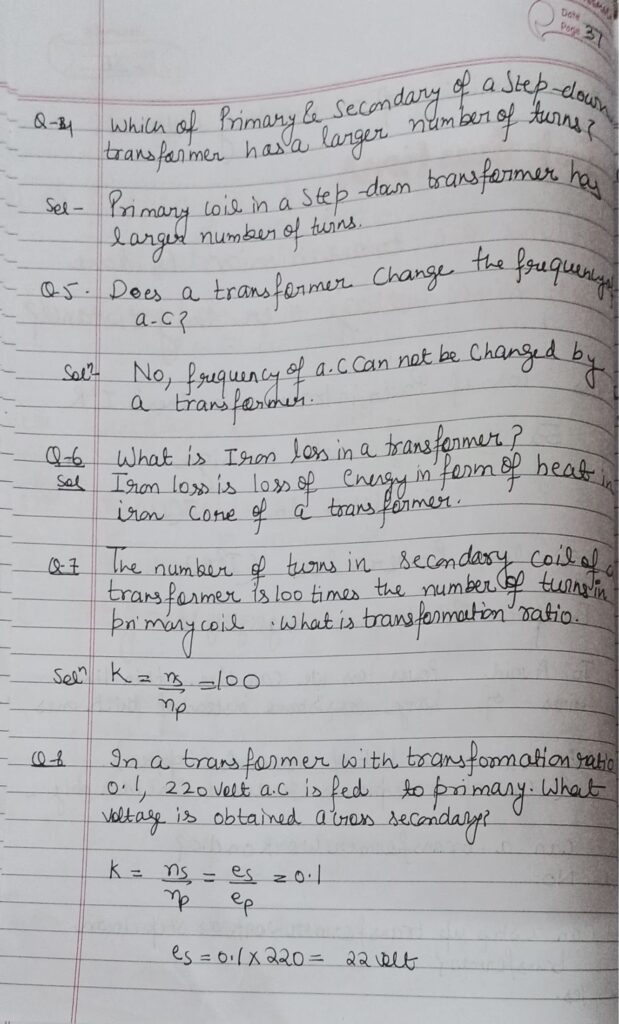 Date
Page 37
Q-4 Which of Primary & Secondary of a Step-down
transformer has a larger number of turns?
Sol- Primary coil in a Step-down transformer has
larger number of turns.
Q-5. Does a transformer Change the frequency of
a-C?
Solⁿ- No, frequency of a.c Can not be Changed by
a transformer.
Q-6 What is Iron loss in a transformer?
Sol Iron loss is loss of Energy in form of heat in
iron Core of a transformer.
Q-7 The number of turns in secondary coil of a
transformer is 100 times the number of turns in
primary coil. What is transformation ratio.
Solⁿ K = ns/np = 100
Q-8 In a transformer with transformation ratio
0.1, 220 volt a.c is fed to primary. What
voltage is obtained across secondary?
K = ns/np = es/ep = 0.1
es = 0.1 X 220 = 22 volt